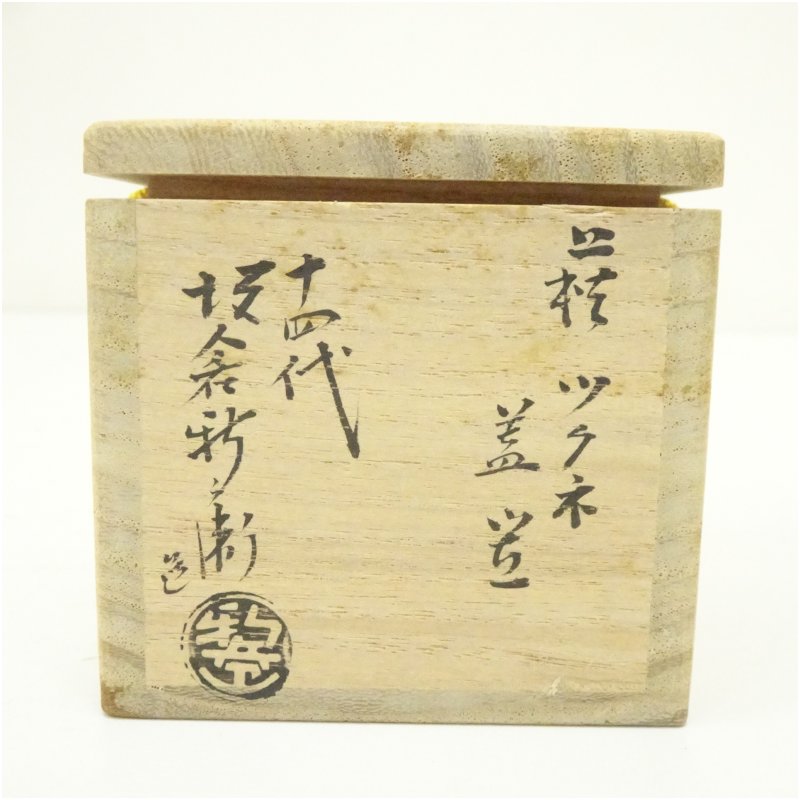 萩 ツクネ
蓋置
十四代
坂倉新兵衛
造